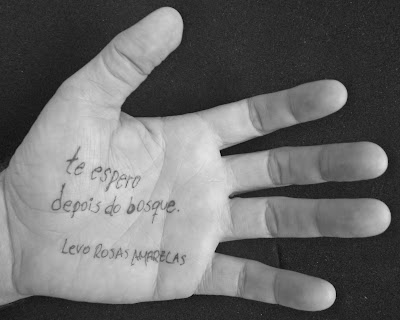 te espero
depois do bosque.
LEVO ROSAS AMARELAS